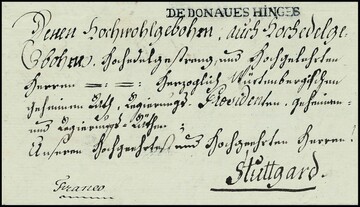 DE DONAUESHINGEN
Denen Hochwohlgebohrn, auch Hochedelge-
bohrn, Hochedelgestreng und Hochgelehrten
Herren Herzoglich Würtenbergischen
geheimen Rath, Regierungs-Presidenten, geheimen-
und Regierungs-Räthen;
Unseren Hochgeehrtest und Hochgeehrten Herren!
Stuttgard.
Franco